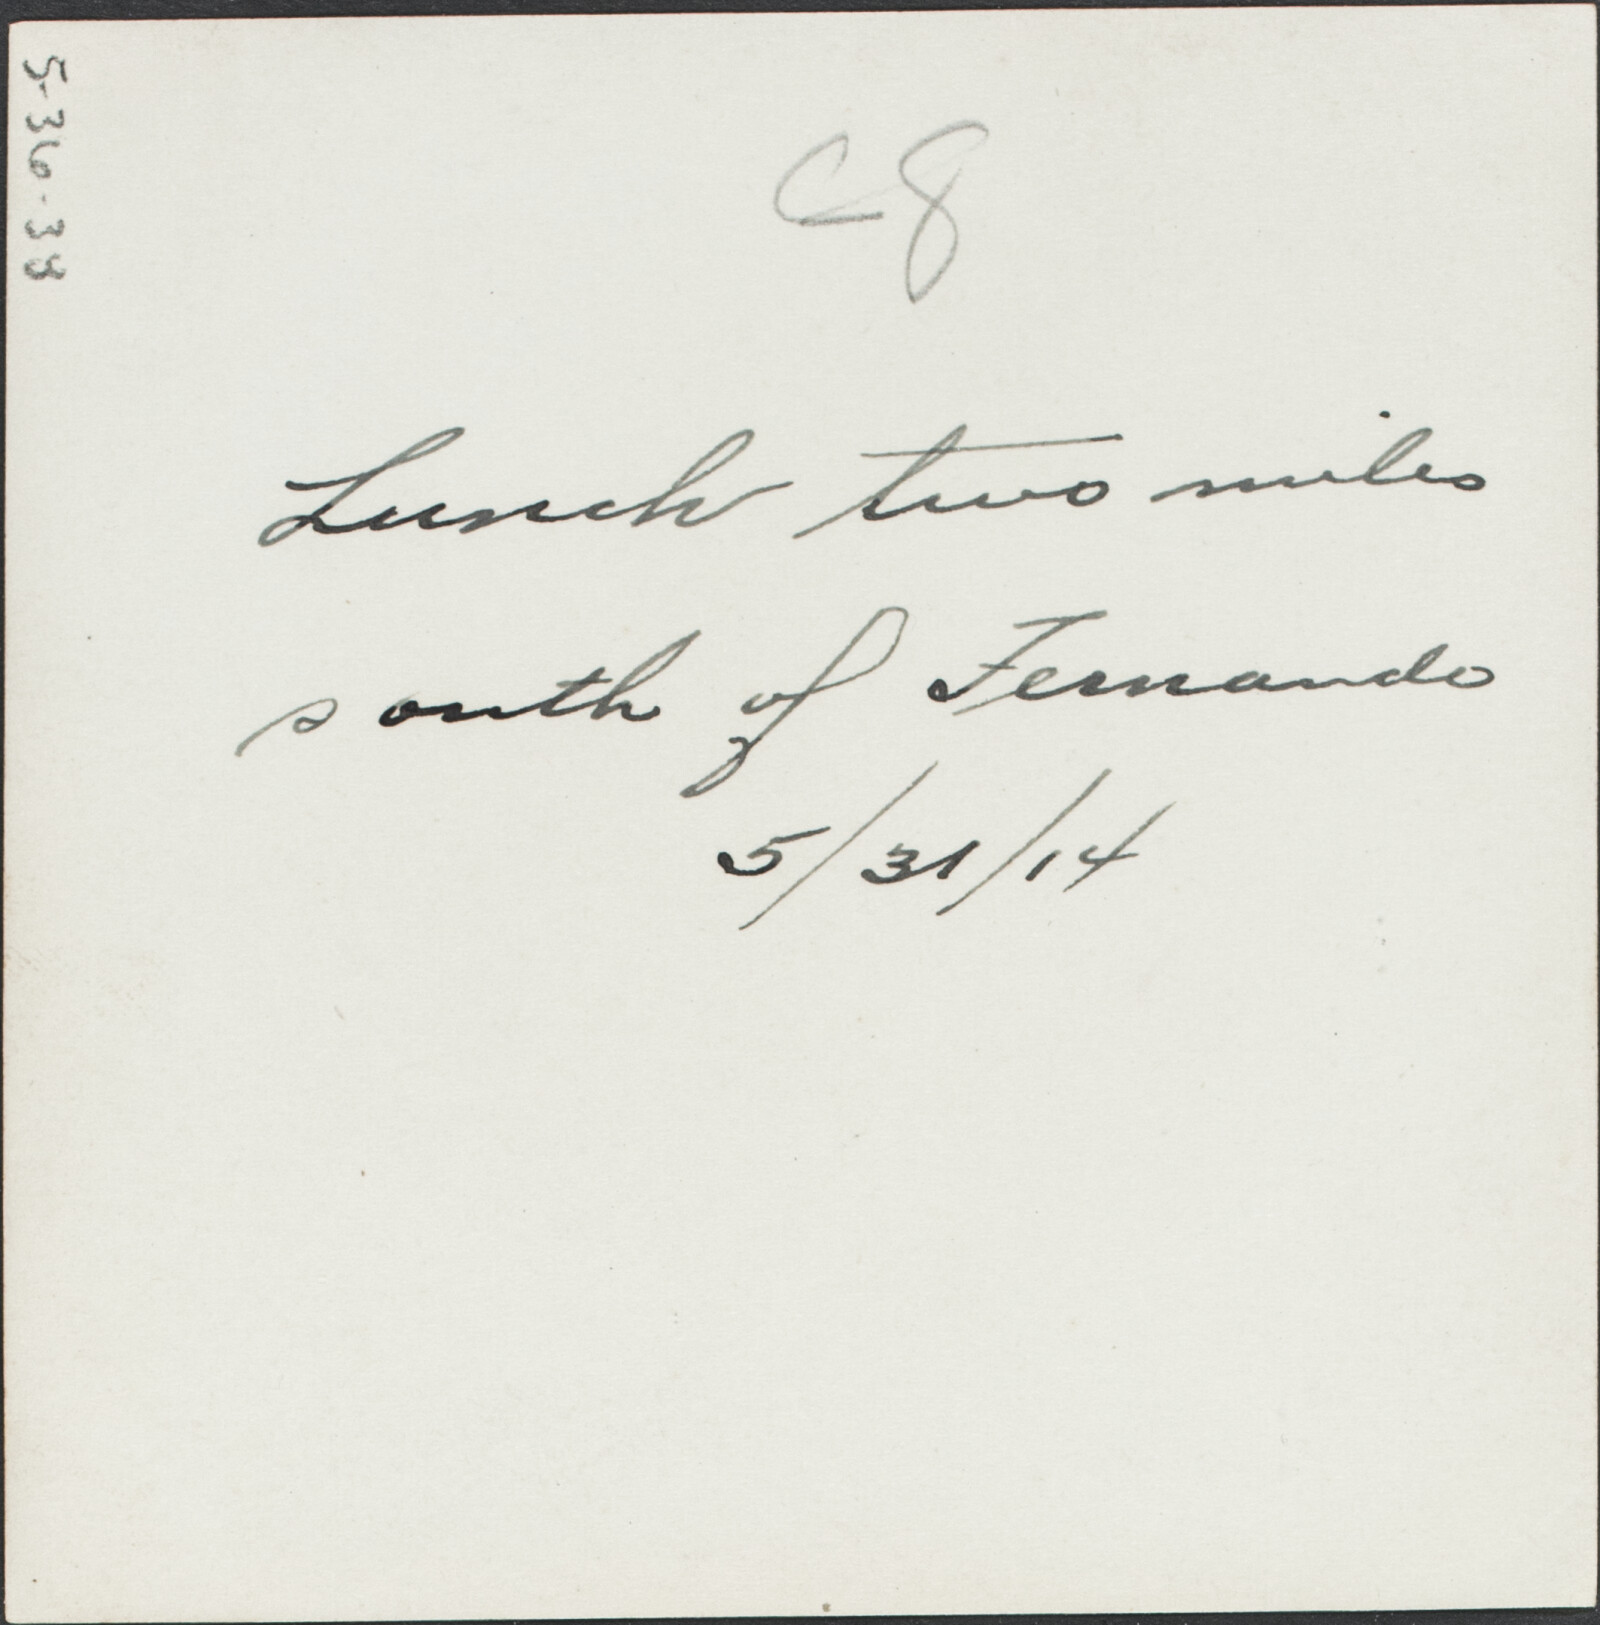 5-36-38
C8
Lunch two miles
south of Fernando
5/31/14